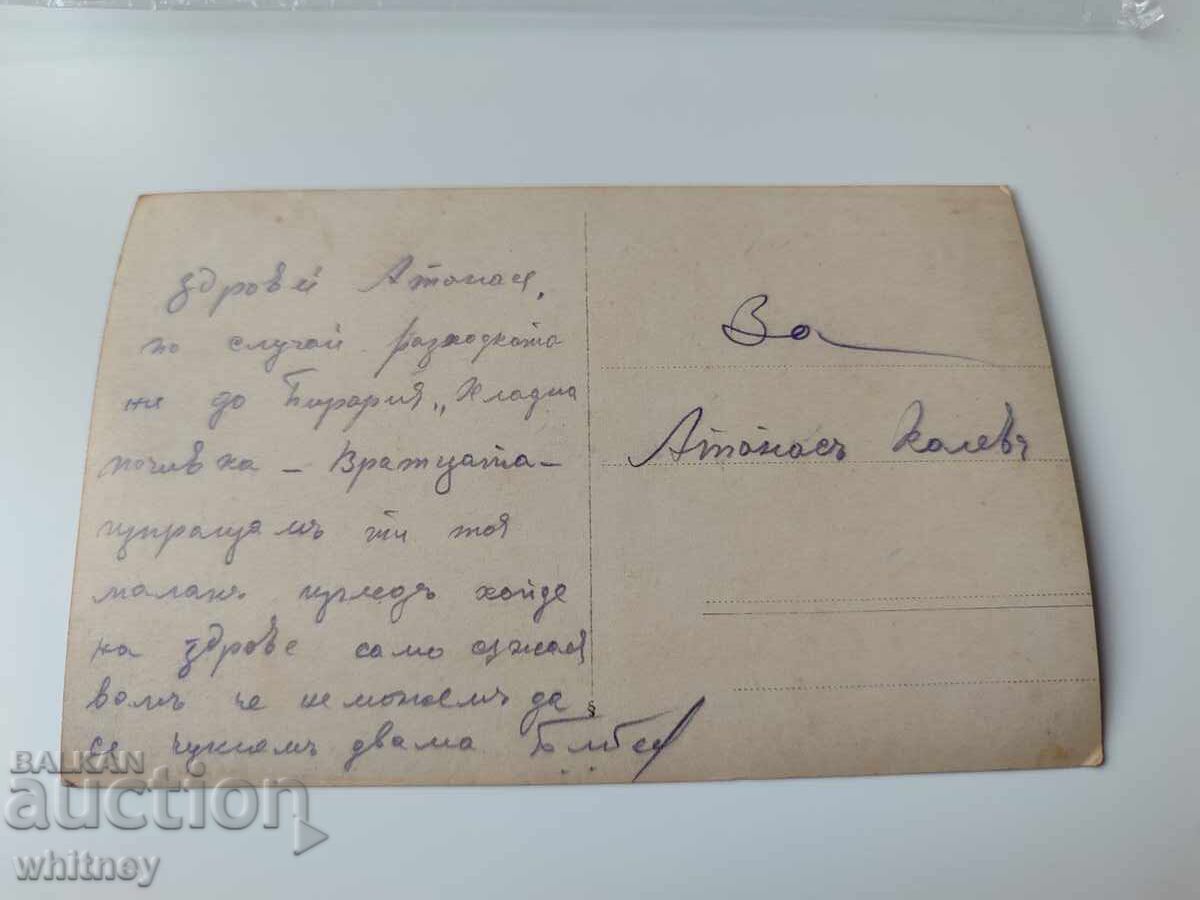 здровей Атонася,
по случай разходката
ми до Бирария „Хладна
почивка – Вратцата –
изпращамъ ти тоя
малакъ изгледъ хойде
на здраве само
вамъ че неможемъ да
се чукнемъ двама
За
Атанасъ Калевъ
§
BALKAN
auction
whitney